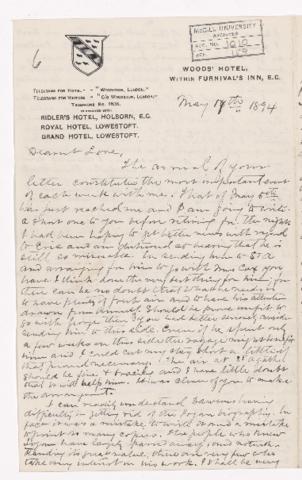 6
McGILL UNIVERSITY
ARCHIVES
ACC. NO. 1010
REF.
WOODS' HOTEL,
WITHIN FURNIVAL'S INN, E.C.
TELEGRAMS FOR HOTEL - "WOODHEIM, LONDON."
TELEGRAMS FOR VISITORS - "C/O WOODHEIM, LONDON."
TELEPHONE NO.
RIDLER'S HOTEL, HOLBORN, E.C.
ROYAL HOTEL, LOWESTOFT.
GRAND HOTEL, LOWESTOFT.
May 17th 1894
Dearest Love,
The arrival of your
letter constitutes the most important event
of each week with me. That of May 6th
has just reached me and I am going to write
a short one to you before retiring for the night.
I had been hoping to get better news with regard
to Eric and am grieved to hear that he is
still so miserable. In sending him to
and arranging for him to go with Mrs Cox you
have I think done the very best thing for him for
there can be no doubt that what he needs is
to have plenty of fresh air and to have his attention
drawn from himself. Should he prove unfit to
go with you had better consider
sending him to this side. Even if he spent only
a few weeks on this side the voyage might benefit
him and I could cut my stay short a little if
that proved necessary. The air at
should be fine & bracing and I have little doubt
that it will help him. It was clever of you to make
the arrangement.
I can readily understand Dawson's having
difficulty in getting rid of the Logan biography. In
fact it was a mistake to write it and a mistake
to print so many copies. The people who knew
Logan have largely passed away and notwith-
standing its great value there are very few who
take any interest in his work. I shall be very